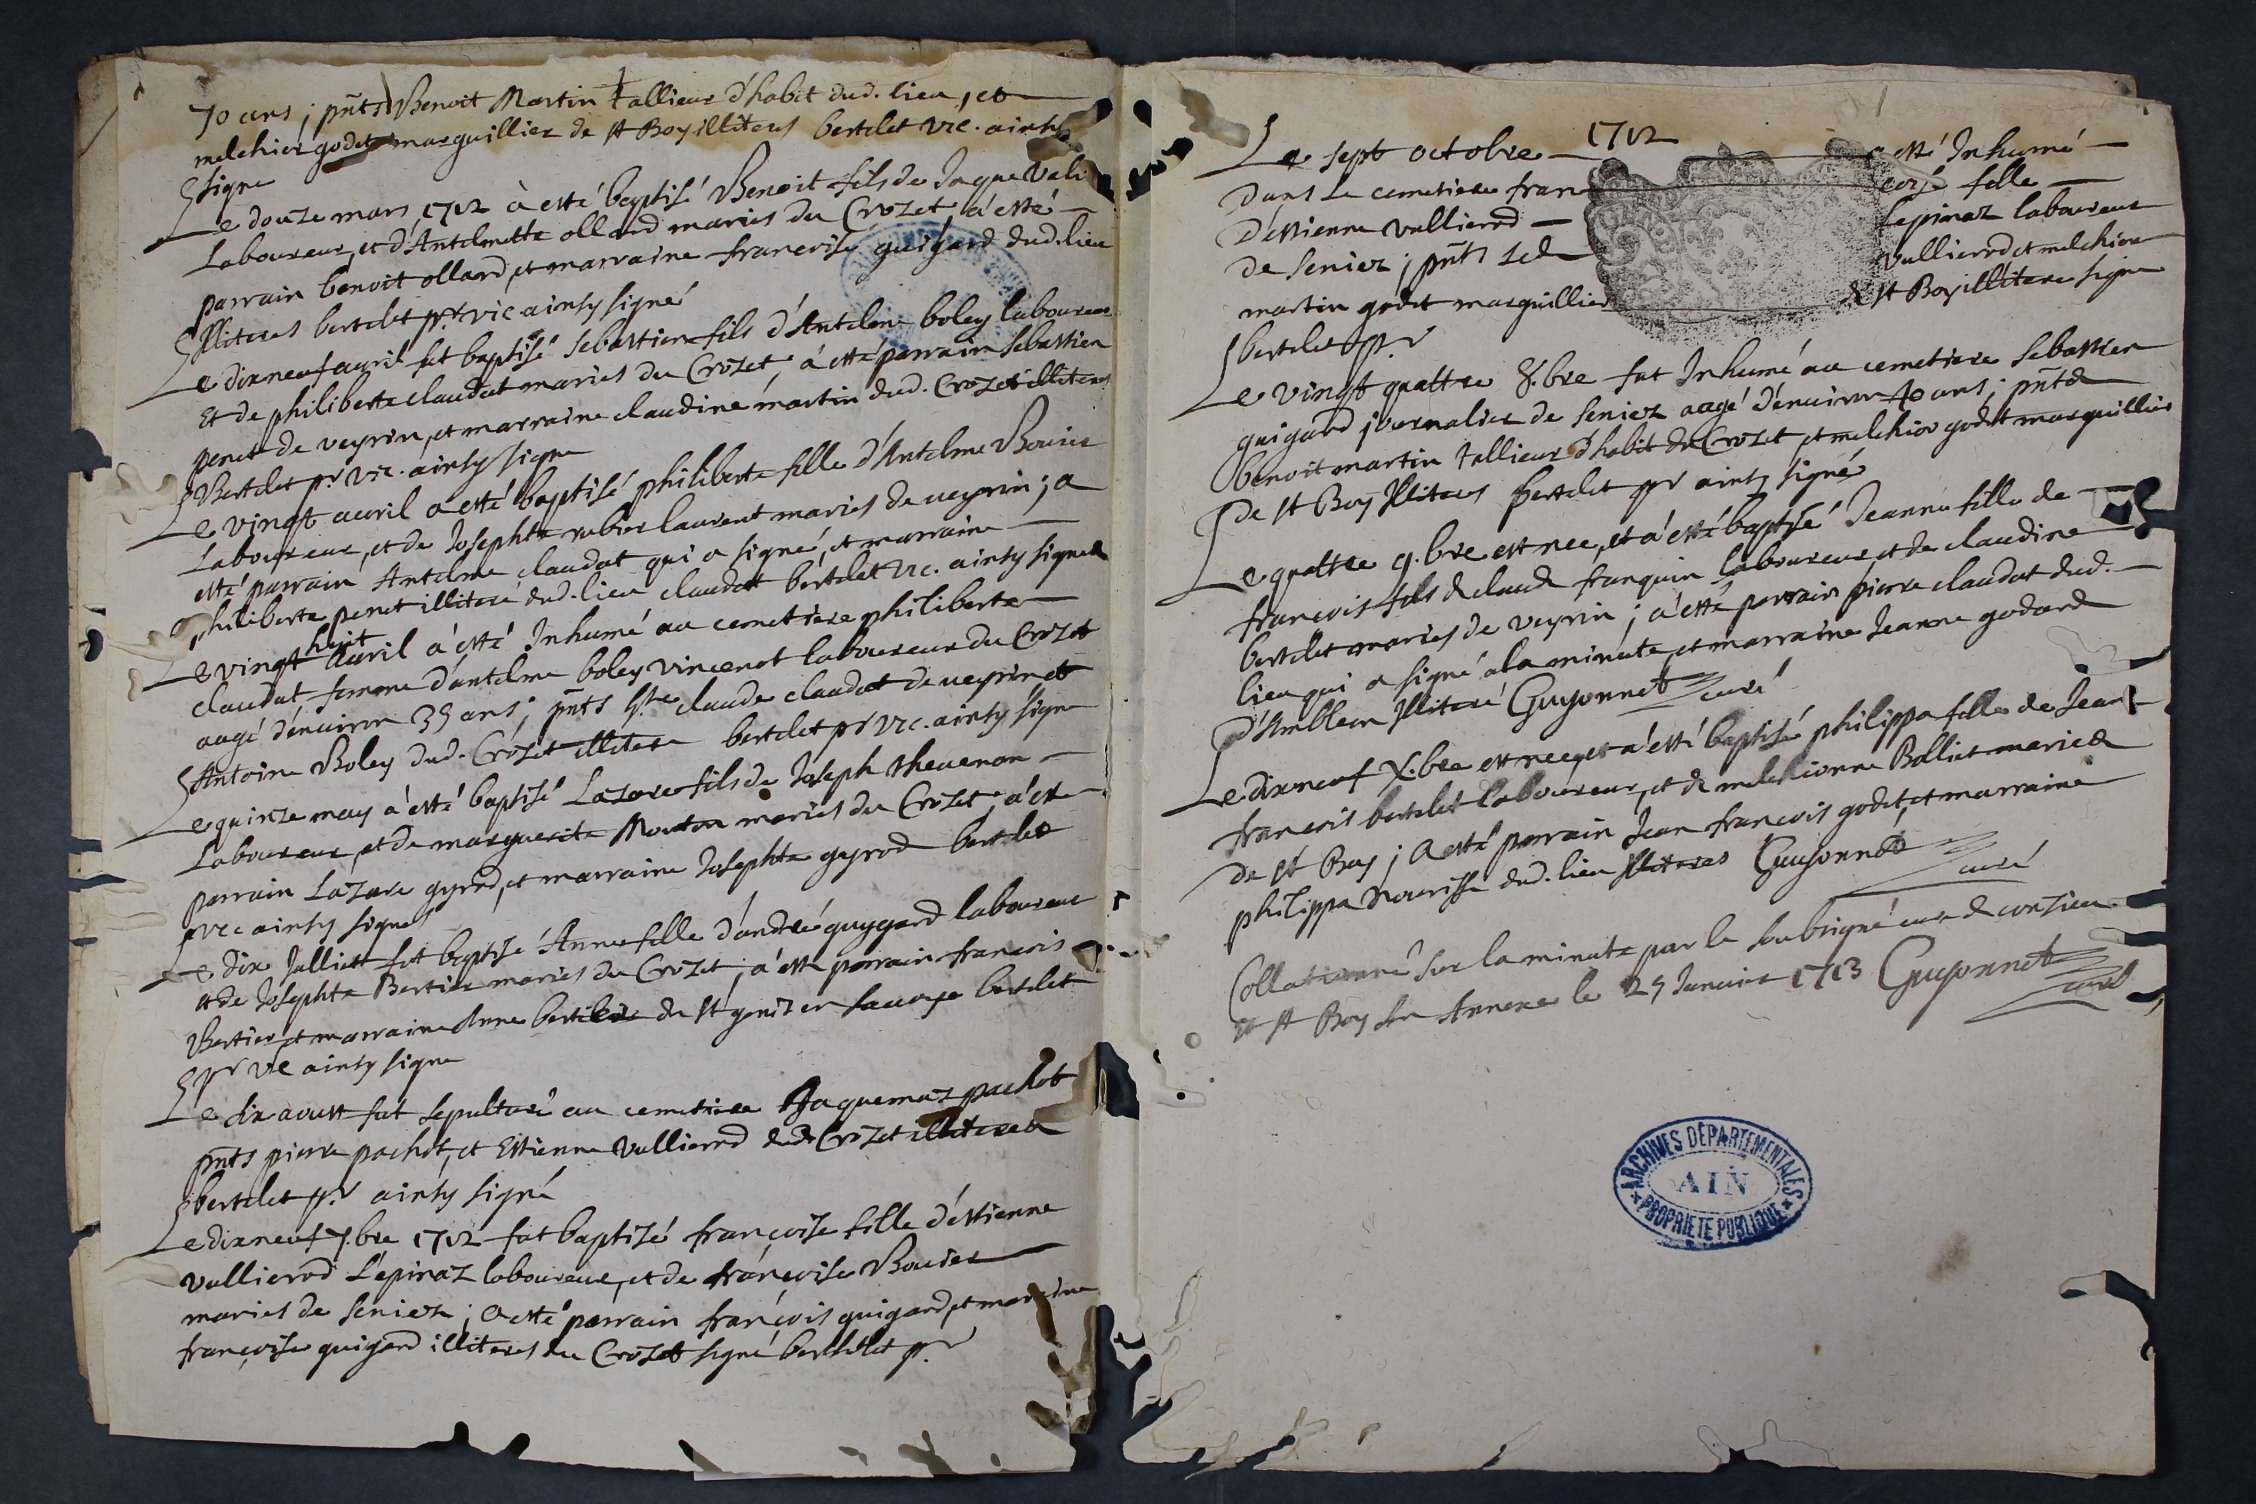 70 ans ; pnts Benoit Martin tallieur d'habit dud. lieu, et
melchior godet marguillier de st Boy illiteres bertelet vic. ainsy
signe
Le douze mars 1712 à esté baptisé Benoit fils de Jaque Vali
Laboureur, et d'Antelmette ollard mariés du Crozet, à esté
parrain benoit ollard, et marraine francoise guigard dud. lieu
Illiteres bertelet pr. vic ainsy signé
Le dixneuf auril fut baptisé Sebastien fils d'Antelme boley laboureur
Et de philiberte claudat mariés du Crozet, à esté parrain Sebastien
penet de veyrin, et marraine claudine martin dud. Crozet illiteres
Bertelet pr. vic. ainsy signe
Le vingt auril a esté baptisé philiberte fille d'Antelme Bouier
Laboureur, et de Josephte laurent mariés de ueyrin ; a
esté parrain Antelme claudat qui a signé, et marraine
philiberte penet illiteré dud. lieu claudat bertelet vic. ainsy signes
Le vingt huit auril à esté Inhumé au cemetiere philiberte
claudat femme d'antelme boley vincenot laboureur du Crozet
aagé d'enuiron 35 ans ; pnts claude claudat de ueyrin et
Antoine Boley dud. Crozet illiteres bertelet pr vic. ainsy signe
Le quinze may à esté baptisé Lazare fils de Joseph theuenon
Laboureur, et de marguerite Mouton mariés du Crozet, à esté
parrain Lazare gyrod, et marraine Josephte gyrod bertelet
vic ainsy signes
Le dix Julliet fut baptisé Anne fille d'andré guygard laboureur
et de Josephte Bertier mariés du Crozet ; à esté parrain francois
Bertier, et marraine Anne de st genis en sauoye bertelet
pr vic ainsy signe
Le dix aoust fut sepulturé au cemetiere Jaquemaz pachot
pnts pierre pachot, et Estienne Vullierod dud. Crozet illiteres
bertelet pr. ainsy signé
Le dixneuf 7.bre 1712 fut baptisé françoise fille d'estienne
vullierod Lepinaz laboureur, et de françoise Bouier
mariés de seniez ; a esté parrain françois guigard, et marraine
françoise guigard illiteres du Crozet signé bertelet pr.
Le sept octobre 1712 a esté Inhumé
Dans le cemetiere fran coise fille
D'estienne vullierod Lepinaz laboureur
de seniez ; pnts vullierod et melchior
martin godet marguillier de st Boy illiteres signe
bertelet pr.
Le vingt quattre 8.bre fut Inhumé au cemetiere Sebastien
guigard journalier de seniez aagé d'enuiron 40 ans ; pnts
benoit martin tallieur d'habit du Crozet et melchior godet marguillier
De st Boy Illiteres bertelet pr ainsy signé
Le quattre 9.bre est nee, et à esté baptisé Jeanne fille de
françois fils de claude franquin laboureur et de claudine
bertelet mariés de veyrin ; à esté parrain pierre claudat dud.
lieu qui a signé a la minute, et marraine Jeanne godard
d'Amblem Illiteré Guyonnet curé
Le dixneuf X.bre est nee, et à esté baptisé philippa fille de Jean
francois bertelet laboureur, et de melchionne Bolliet mariés
de st Boy ; a esté parrain Jean françois godet, et marraine
philippa Nourisse dud. lieu Illiteres Guyonnet
curé
Collationné sur la minute par le soubsigné curé de conzieu
et st Boy son Annexe le 25 Januier 1713 Guyonnet
curé
ARCHIVES DÉPARTEMENTALES
AIN
PROPRIÉTÉ PUBLIQUE